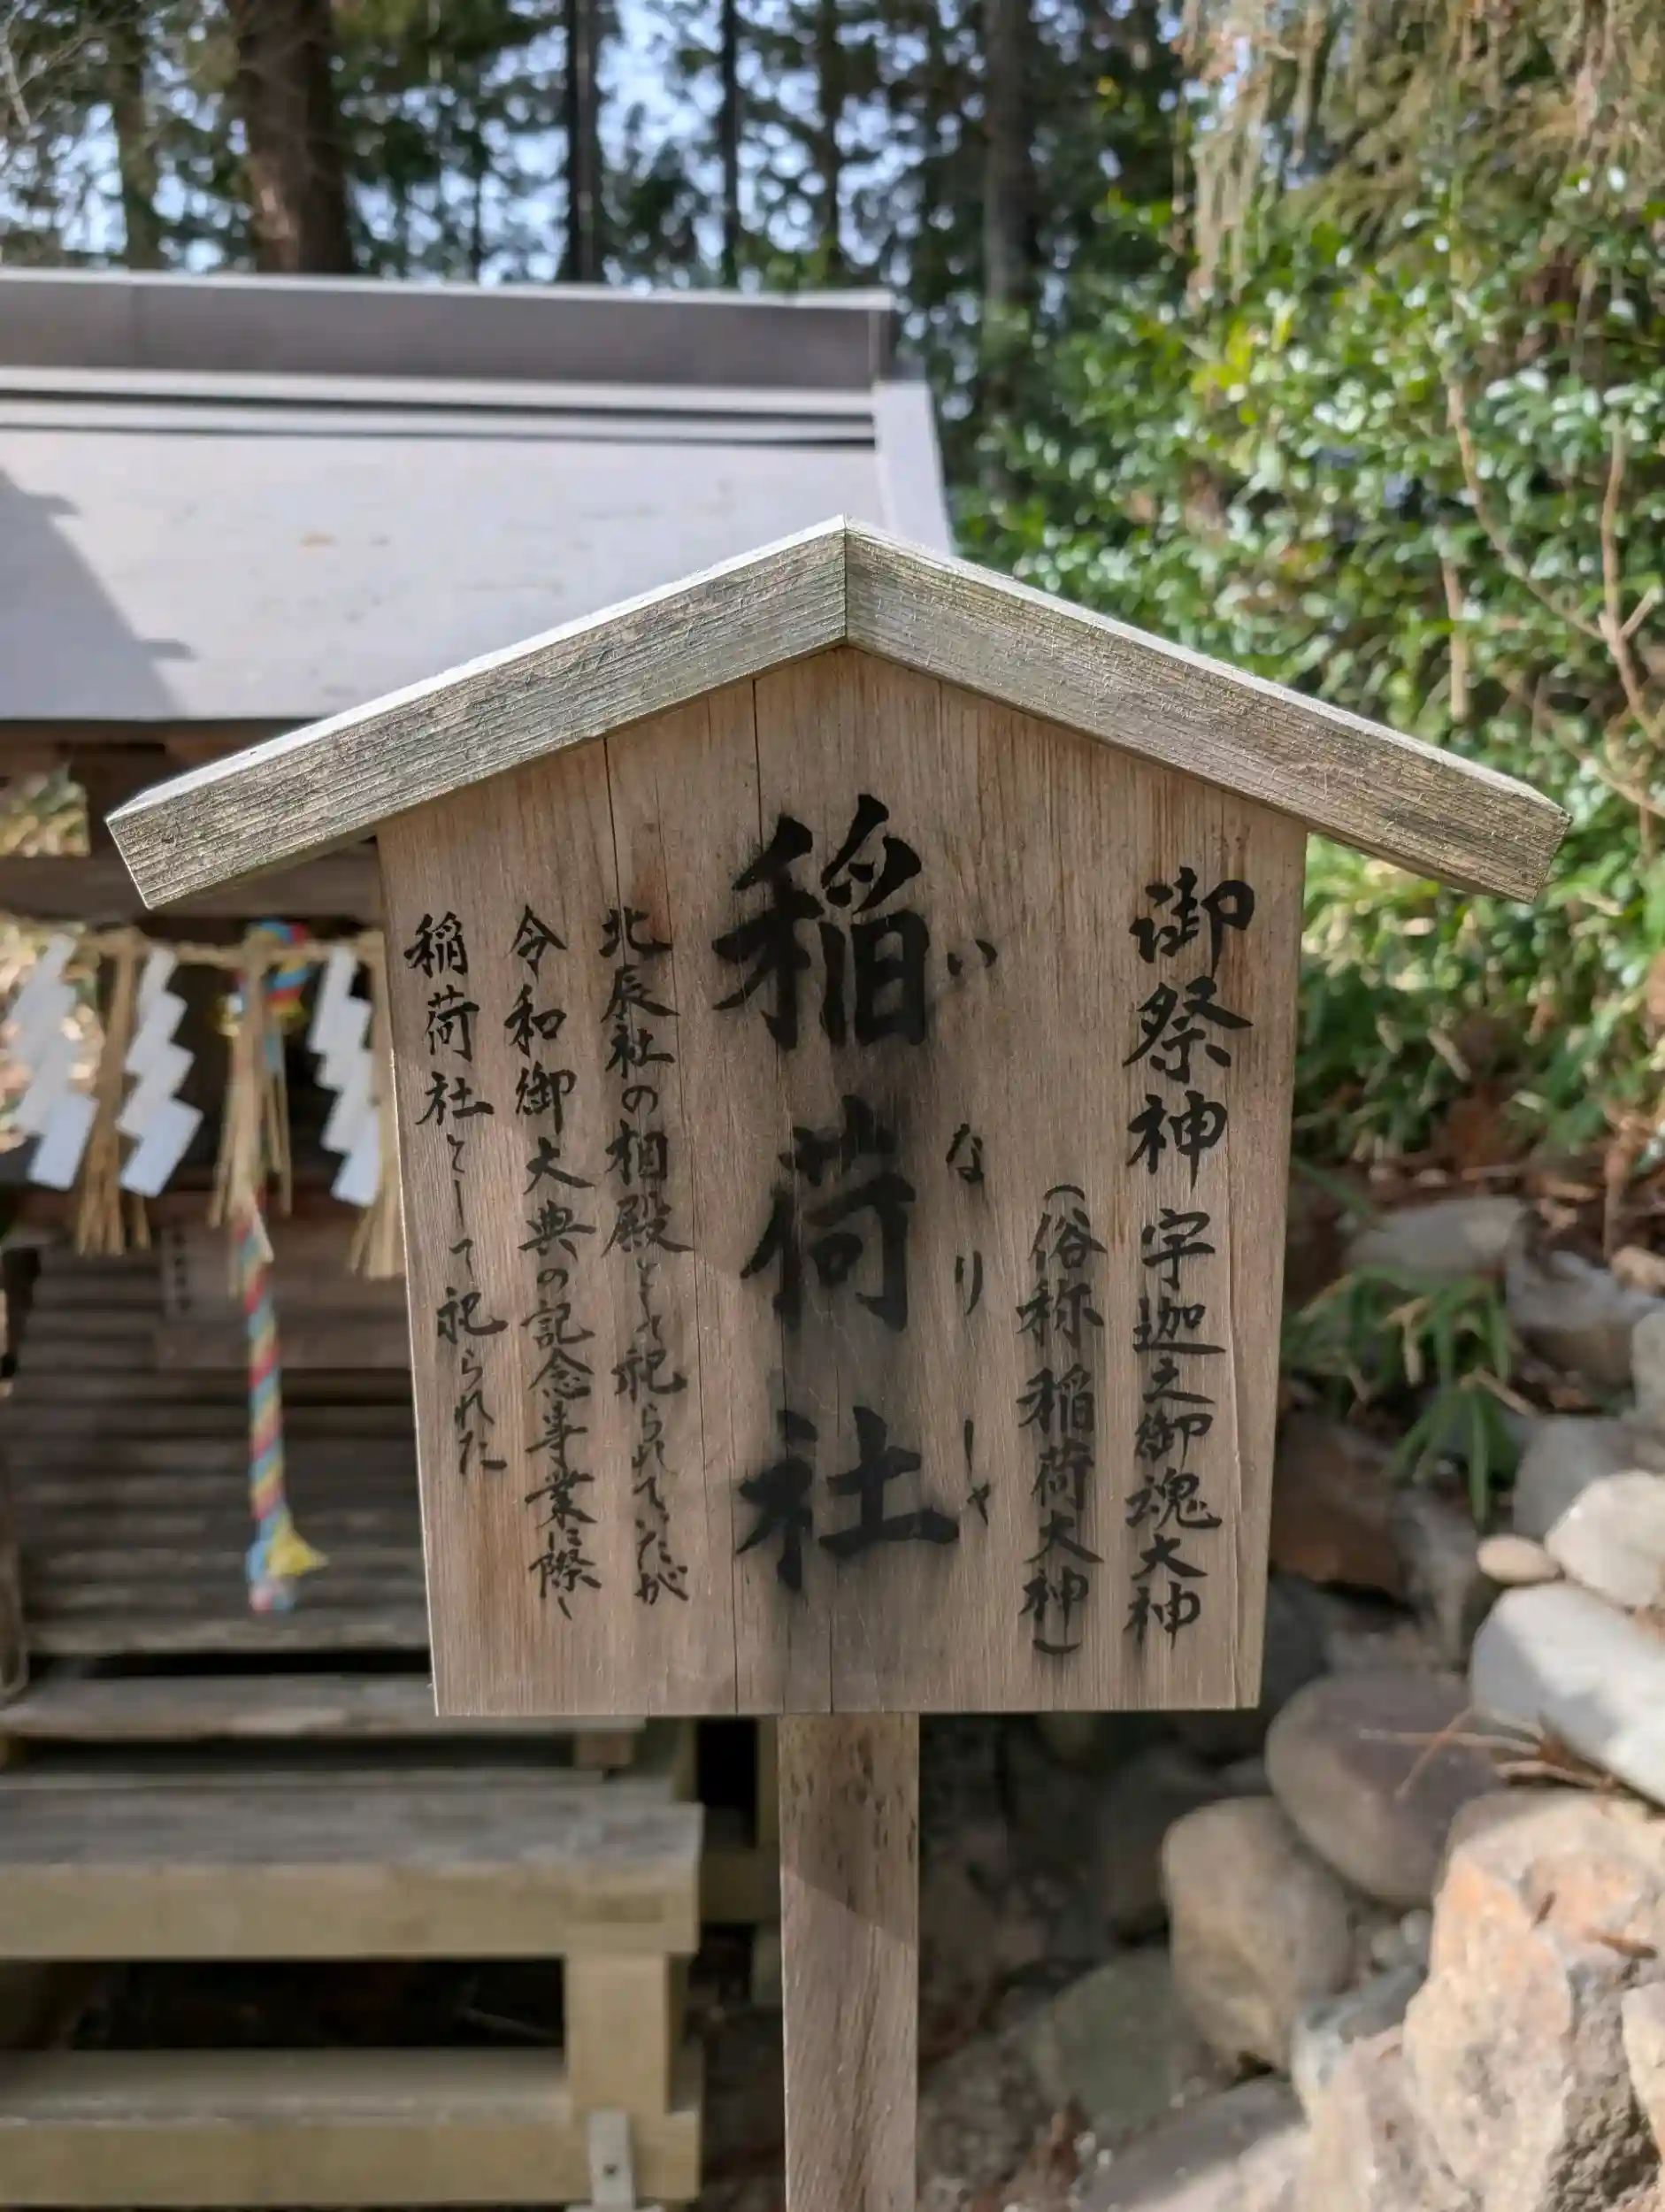 御祭神 宇迦之御魂大神
(俗称 稲荷大神)
いなりしゃ
稲荷社
北辰社の相殿として祀られていたが
令和御大典の記念事業に際し
稲荷社として祀られた